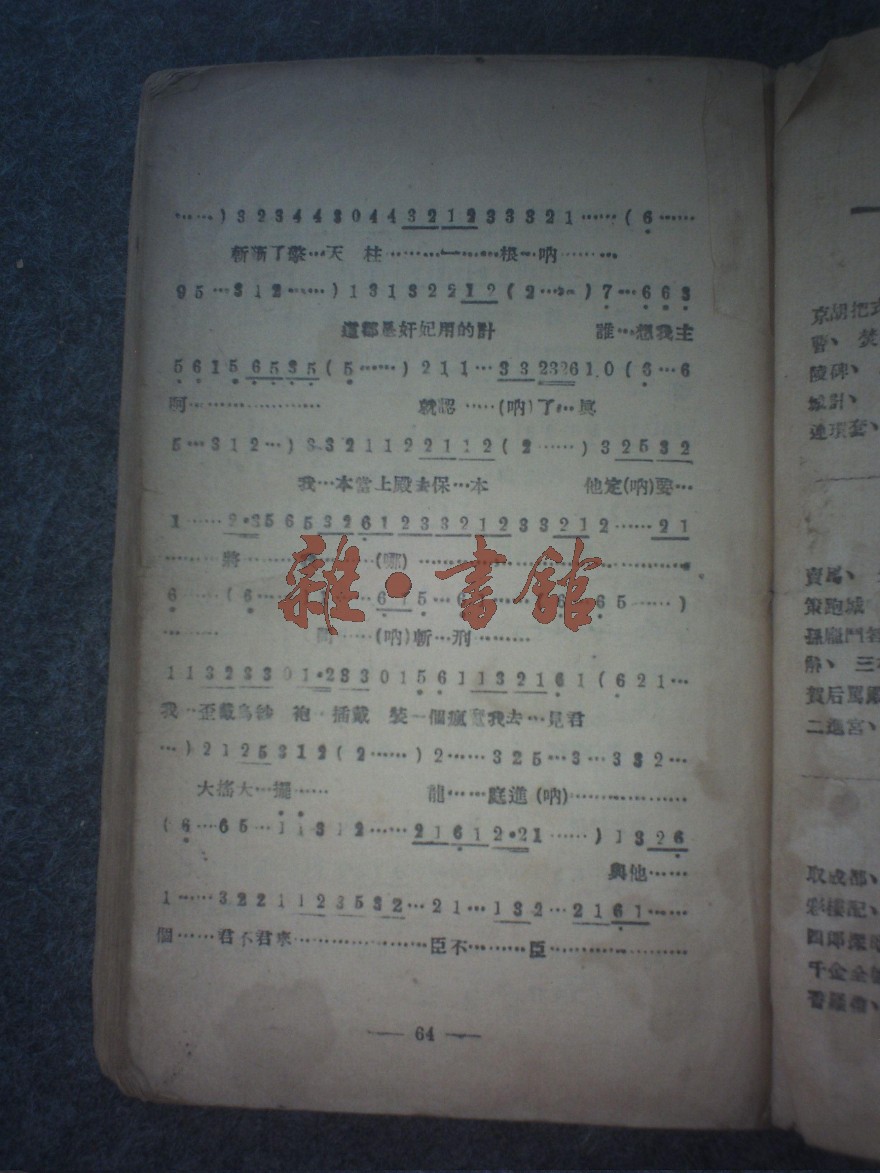 ……)3 2 3 4 4 3 0 4 4 3 2 1 2 2 3 3 3 2 1……(6……
斬斷了擎…天 柱…………一………根…吶………
9 5…3 1 2……)1 3 1 3 2 2 1 2(2……)7…6 6 3
這都是奸妃用的計 誰…想我主
5 6 1 5 6 5 3 5(5……)2 1 1…3 3 2326 1.0(6…6
啊………………… 就認……(吶)了…眞
5…3 1 2…)3 3 2 1 1 2 2 1 1 2(2……)3 2 5 3 2
我…本當上殿去保…本 他定(吶)要…
1……2·3 5 6 5 3 2 6 1 2 3 3 2 1 2 3 3 2 1 2……2 1
………將………(哪)…………………………………
6……(6……6 1 5…6……6 5……)
………問……(吶)斬…刑………
1 1 3 2 3 3 0 1·2 3 3 0 1 5 6 1 1 3 2 1 6 1(6 2 1…
我…歪戴烏紗 袍…插戴 裝一個瘋 我去…見君
…)2 1 2 5 3 1 2(2……)2……3 2 5…3…3 3 2…
大搖大…擺…… 龍……庭進(吶)………………
(6…6 5…1 1 3 1 2……2 1 6 1 2·2 1……)1 3 2 6
與他……
1……3 2 2 1 1 2 3 5 3 2…2 1…1 3 2…2 1 6 1……
個……君不君來…………………臣不………臣…………………
— 64 —
雜·書館
京胡把式
陵碑、
城計、
連環套、
賣馬、
策跑城
孫龐鬥智
解、三
賀后罵殿
二進宮、
取成都、
彩樓配、
四郎探
千金全
普羅